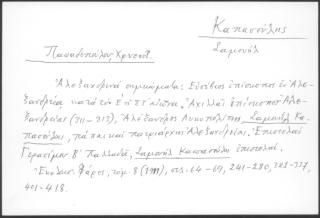 Καπασούλης
Σαμουήλ
Παπαδόπουλος Χρυσοστ.
Ἀλεξανδρινά σημειώματα: Εὐσέβιος ἐπίσκοπος ἐν Ἀλε-
ξανδρείᾳ κατά τόν αἰῶνα. Ἀχιλλᾶς ἐπίσκοπος Ἀλε-
ξανδρείας (311-313). Ἀλέξανδρος Λυκοπολίτης, Σαμουήλ Κα-
πασούλης, πάπας καί πατριάρχης Ἀλεξανδρείας. Ἐπιστολαί
Γερασίμου Β' Παλλαδᾶ, Σαμουήλ Καπασούλη ἐπιστολαί.
Ἐκκλησ. Φάρος, τομ. 8 (1911), σελ. 64-69, 241-280,
401-418.